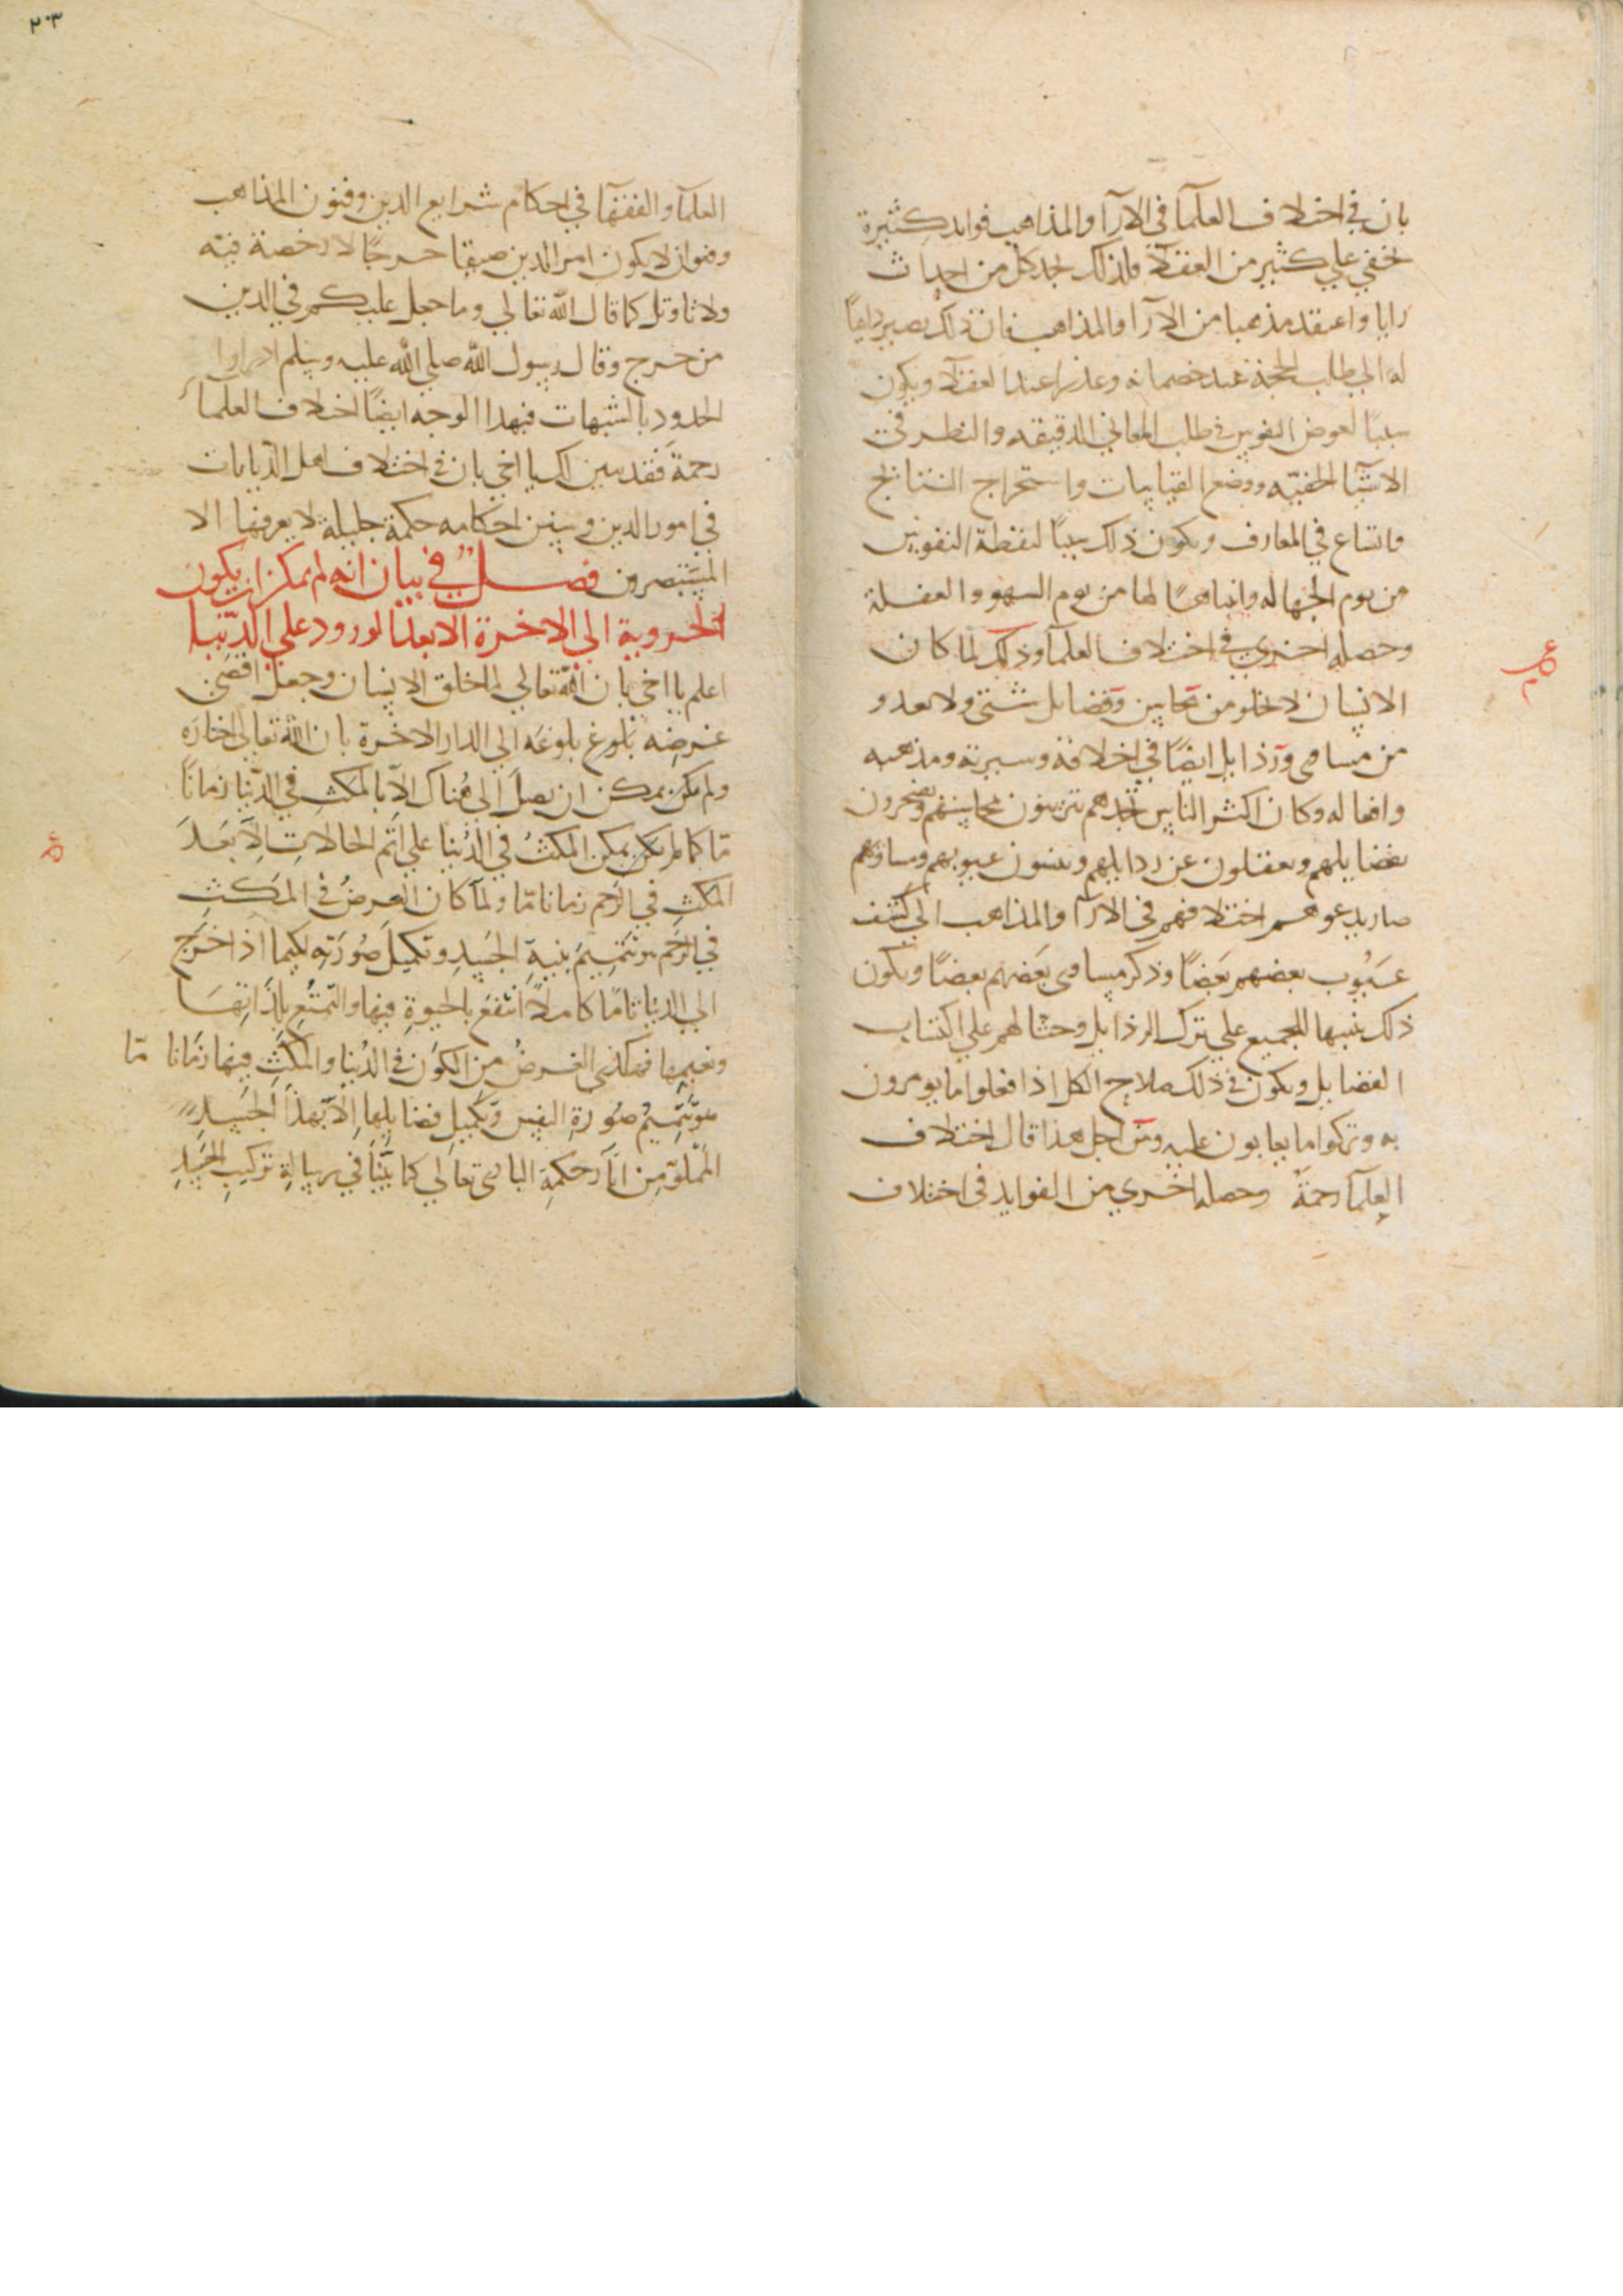 بان في اختلاف العلمآ في الآرآ والمذاهب فوايد كثيرة
تخفي علي كثير من العقلآ فلذلك تجد كل من احدث
رايا واعتقد مذهبا من الآرآ والمذاهب فان ذلك يصير داعيًا
له الي طلب الحجة عند خصمائه وعذرا عند العقلآ ويكون
سببًا لغوص النفوس في طلب المعاني الدقيقه والنظر في
الاشيآ الخفيّه ووضع القياسات واستخراج النتائج
واتساع في المعارف ويكون ذلك سببًا ليقظة النفوس
من نوم الجهاله وانباهًا لها من نوم السهو والغفلة
وحصله اخري في اختلاف العلمآ وذلك لما كان
الانسان لا يخلو من محاسن وفضايل شتي ولا يعدو
من مساوي ورذايل ايضًا في اخلاقه وسيرته ومذهبه
وافعاله وكان اكثر الناس تجدهم يتزينون بمحاسنهم ويفخرون
بفضايلهم ويغفلون عن رذايلهم وينسون عيوبهم ومساويهم
صار يدعوهم اختلافهم في الآرآ والمذاهب الي كشف
عيُوب بعضهم بَعضًا وذكر مساوي بَعضهم بعضًا ويكون
ذلك تنبيها للجميع علي ترك الرذايل وحثا لهم علي اكتساب
الفضايل ويكون في ذلك صلاح الكل اذا فعلوا ما يومرون
به وتركوا ما يعابون عليه ومن اجل هذا قال اختلاف
العلمآ رحمةً وحصله اخري من الفوايد في اختلاف
٢٠٣
العلمآ والفقهآ في احكام شرايع الدين وفنون المذاهب
وهو ان لا يكون امر الدين ضيقا حرجًا لا رخصة فيه
ولا تاويل كما قال الله تعالي وما جعل عليكم في الدين
من حرج وقال رسول الله صلي الله عليه وسلم ادراوا
الحدود بالشبهات فبهذا الوجه ايضًا اختلاف العلمآ
رحمة فقد تبين لك يا اخي بان في اختلاف اهل الديانات
في امور الدين وسنن احكامه حكمة جليلة لا يعرفها الا
المستبصرون فصلٌ في بيان انه لم يمكن ان يكون
الخروية الي الاخرة الا بعد الورود علي الدّنيا
اعلم يا اخي بان الله تعالي لما خلق الانسان وجعل اقصي
غرضِه بُلوغ بلوغَه الي الدار الاخرة بان الله تعالي اختاره
ولم يكن يمكن ان يصلَ الي هُناك الاّ بالمكث في الدّنيا زمانًا
مّا كما لم يكن يمكن المكثُ في الدُنيا علي اتمّ الحالاتِ الِاّ بَعدَ
المكثِ في الرحم زمانا مّا ولمّا كان الغرضُ في المَكثِ
في الرَحم هو تَتميمَ بنيةِ الجَسدِ وتكميلَ صُورَتِه لكيما اذا خَرَج
الي الدنيا تامًا كاملًا انتفعَ بالحيوةِ فيها والتمتُعِ بلِذَاتِهَا
ونعيمِها فهكذي الغرضُ من الكَون في الدُنيا والمكثِ فيها زمَانا مّا
هو تتّمِيمُ صُورةِ النفس وتكميلِ فضايلِها الِاّ بهذَا الجَسدِ
المملوّ مِن اثآر حكمةِ الباري تعالي كما بيَّنّا في رسالةِ تركيبِ الجَسَدِ